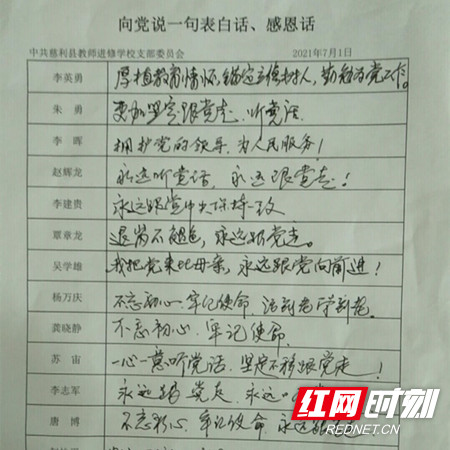 向党说一句表白话、感恩话
中共慈利县教师进修学校支部委员会 2021年7月1日
李英勇 厚植教育情怀,锚定立德树人,勤勉为党工作。
朱勇 更加坚定跟党走,听党话
李晖 拥护党的领导,为人民服务!
赵辉龙 永远听党话,永远跟党走!
李建贵 永远跟党中央保持一致
覃章龙 退岗不褪色,永远跟党走。
吴学雄 我把党来比母亲,永远跟党向前进!
杨万庆 不忘初心 牢记使命,活到老学到老。
龚晓静 不忘初心,牢记使命
苏宙 一心一意听党话,坚定不移跟党走!
李志军 永远跟党走,永远
唐博 不忘初心,牢记使命,永远跟党走
红网时刻
REDNET.CN